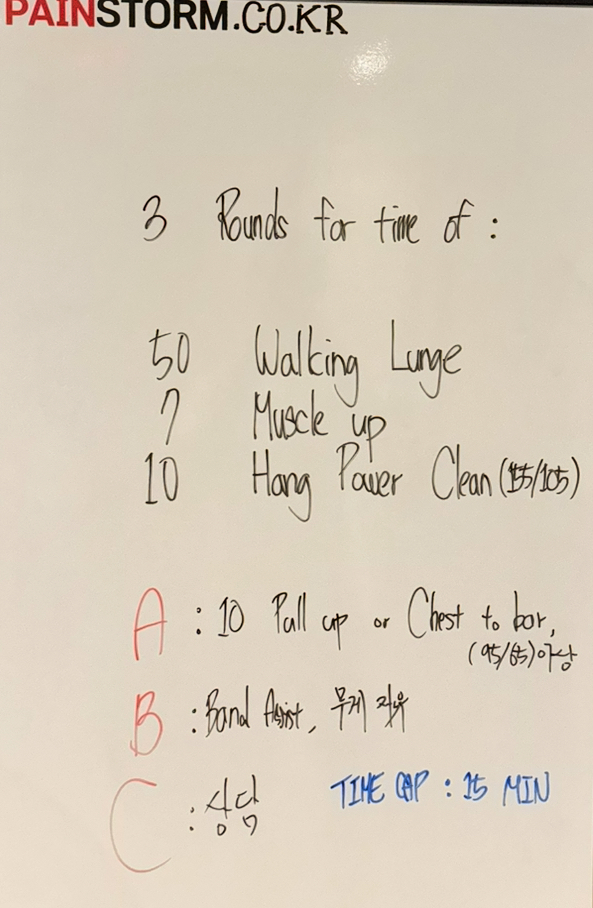 PAINSTORM.CO.KR
3 Rounds for time of :
50 Walking Lunge
7 Muscle up
10 Hang Power Clean (155/105)
A : 10 Pull up or Chest to bar,
(95/65)이상
B : Band Assist, 무게 자유
C : 상담
TIME CAP : 15 MIN